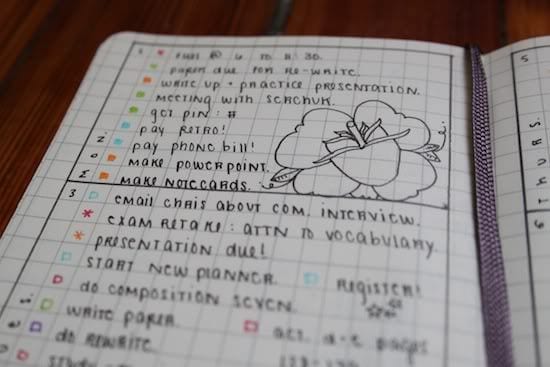 1.
PAPER DUE FOR RE-WRITE.
WRITE UP + PRACTICE PRESENTATION.
MEETING WITH
GOT PIN : #
PAY RETRO!
PAY PHONE BILL!
MAKE POWERPOINT.
MAKE NOTECARDS.
MON.
3
EMAIL CHRIS ABOUT COM. INTERVIEW.
EXAM RETAKE : ATTN TO VOCABULARY
PRESENTATION DUE!
START NEW PLANNER.
REGISTER!
DO COMPOSITION SEVEN.
WRITE PAPER.
ACT. a-e PAGES
DO REWRITE.
5
THURS.
6